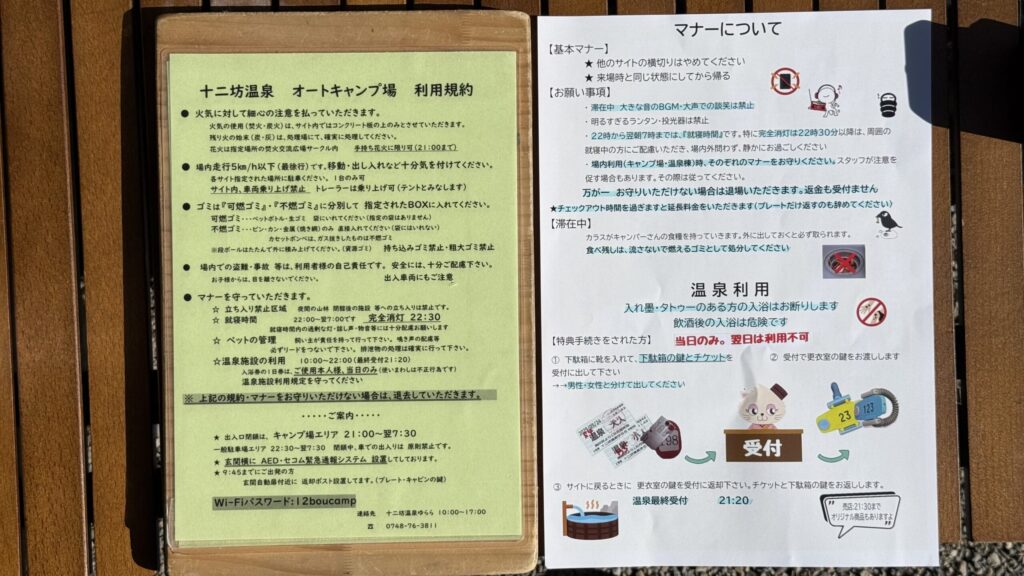 十二坊温泉　オートキャンプ場　利用規約
● 火気に対して細心の注意を払っていただきます。
火気の使用(焚火・炭火)は、サイト内ではコンクリート板の上のみとさせていただきます。
残り火の始末(炭・灰)は、処理場にて、確実に処理してください。
花火は指定場所の焚火交流広場サークル内　手持ち花火に限り可(21:00まで)
● 場内走行5km/h以下(最徐行)です。移動・出し入れなど十分気を付けてください。
各サイト指定された場所に駐車ください。1台のみ可
サイト内、車両乗り上げ禁止　トレーラーは乗り上げ可(テントとみなします)
● ゴミは『可燃ゴミ』・『不燃ゴミ』に分別して 指定されたBOXに入れてください。
可燃ゴミ・・・ペットボトル・生ゴミ　袋にいれてください(指定の袋はありません)
不燃ゴミ・・・ビン・カン・金属(焼き網)のみ 直接入れてください(袋にはいれない)
カセットボンベは、ガス抜きしたものは不燃ゴミ
※段ボールはたたんで外に積み上げてください。(資源ゴミ)　持ち込みゴミ禁止・粗大ゴミ禁止
● 場内での盗難・事故 等は、利用者様の自己責任です。安全には、十分ご配慮下さい。
お子様からは、目を離さないでください。　出入車両にもご注意
● マナーを守っていただきます。
☆ 立ち入り禁止区域　夜間の山林 閉館後の施設 等への立ち入りは禁止です。
☆ 就寝時間　22:00〜翌7:00です　完全消灯 22:30
就寝時間内の過剰な灯・話し声・物音等には十分配慮お願いします
☆ ペットの管理　飼い主が責任を持って行って下さい。鳴き声の配慮等
必ずリードをつないで下さい。排泄物の処理は確実に行って下さい。
☆温泉施設の利用　10:00〜22:00(最終受付21:20)
入浴券の1日券は、ご使用本人様、当日のみ(使いまわしは不正行為です)
温泉施設利用規定を守ってください
※ 上記の規約・マナーをお守りいただけない場合は、退去していただきます。
・・・・・ご案内・・・・・
★ 出入口閉鎖は、キャンプ場エリア 21:00〜翌7:30
一般駐車場エリア 22:30〜翌7:30　閉鎖中、車での出入りは 原則禁止です。
★ 玄関横に AED・セコム緊急通報システム 設置してしております。
★ 9:45までにご出発の方
玄関自動扉付近に 返却ポスト設置してます。(プレート・キャビンの鍵)
Wi-Fiパスワード:12boucamp
連絡先　十二坊温泉ゆらら 10:00〜17:00
☎ 0748-76-3811
マナーについて
【基本マナー】
★ 他のサイトの横切りはやめてください
★ 来場時と同じ状態にしてから帰る
【お願い事項】
・滞在中 大きな音のBGM・大声での談笑は禁止
・明るすぎるランタン・投光器は禁止
・22時から翌朝7時までは、『就寝時間』です。特に完全消灯は22時30分以降は、周囲の
就寝中の方にご配慮いただき、場内外問わず、静かにお過ごしください
・場内利用(キャンプ場・温泉棟)時、それぞれのマナーをお守りください。スタッフが注意を
促す場合もあります。その際は従ってください。
万が一　お守りいただけない場合は退場いただきます。返金も受付ません
★チェックアウト時間を過ぎますと延長料金をいただきます(プレートだけ返すのも辞めてください)
【滞在中】
カラスがキャンパーさんの食糧を持っていきます。外に出しておくと必ず取られます。
食べ残しは、流さないで燃えるゴミとして処分してください
温泉利用
入れ墨・タトゥーのある方の入浴はお断りします
飲酒後の入浴は危険です
【特典手続きをされた方】　当日のみ。翌日は利用不可
① 下駄箱に靴を入れて、下駄箱の鍵とチケットを
受付に出して下さい
→→男性・女性と分けて出してください
② 受付で更衣室の鍵をお渡しします
温泉 大人
温泉 小人
98
受付
23
123
③ サイトに戻るときに 更衣室の鍵を受付に返却下さい。チケットと下駄箱の鍵をお返しします。
温泉最終受付　21:20
売店:21:30まで
オリジナル商品もありますよ